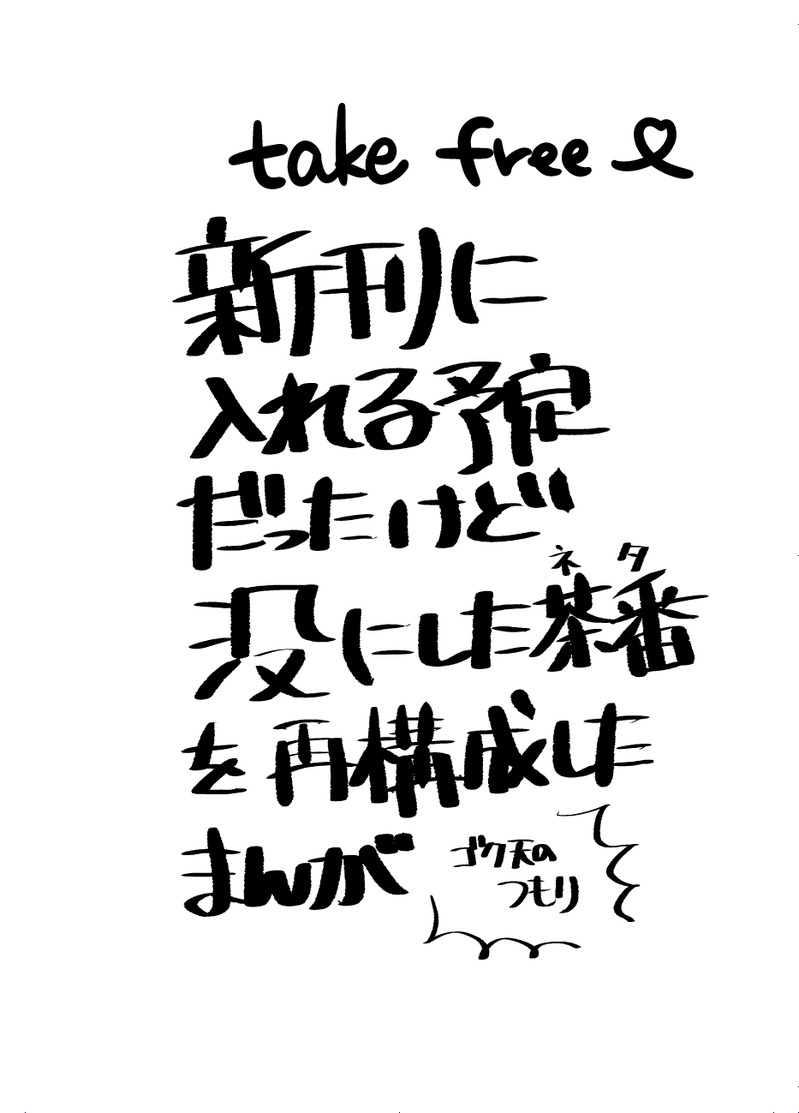 take free
新刊に
入れる予定
だったけど
ネタ
没にした茶番
を再構成した
まんが
ゴク天の
つもり